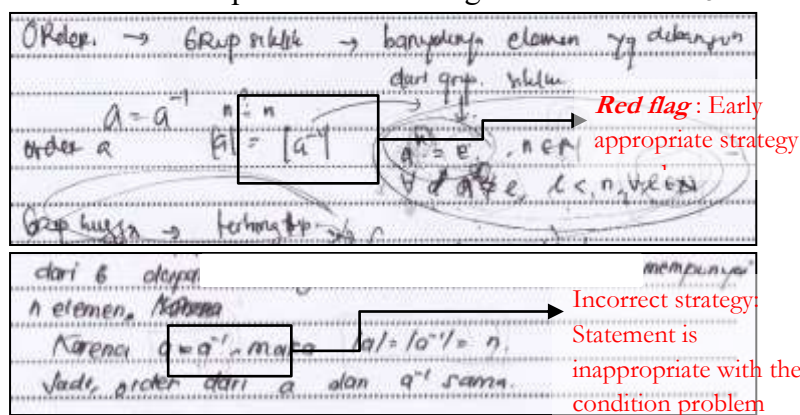 ORder. → GRup siklik → banyaknya elemen yg dibangun
dari grup. siklik
a = a⁻¹ n = n
order a |a| = |a⁻¹| aⁿ = e , n ∈ N
≠ e, l < n, ∀ l ∈ N
Grup hingga →
Red flag : Early
appropriate strategy
dari G mempunyai
n elemen. Karena
Karena a = a⁻¹, maka |a| = |a⁻¹| = n.
Jadi, order dari a dan a⁻¹ sama.
Incorrect strategy:
Statement is
inappropriate with the
condition problem